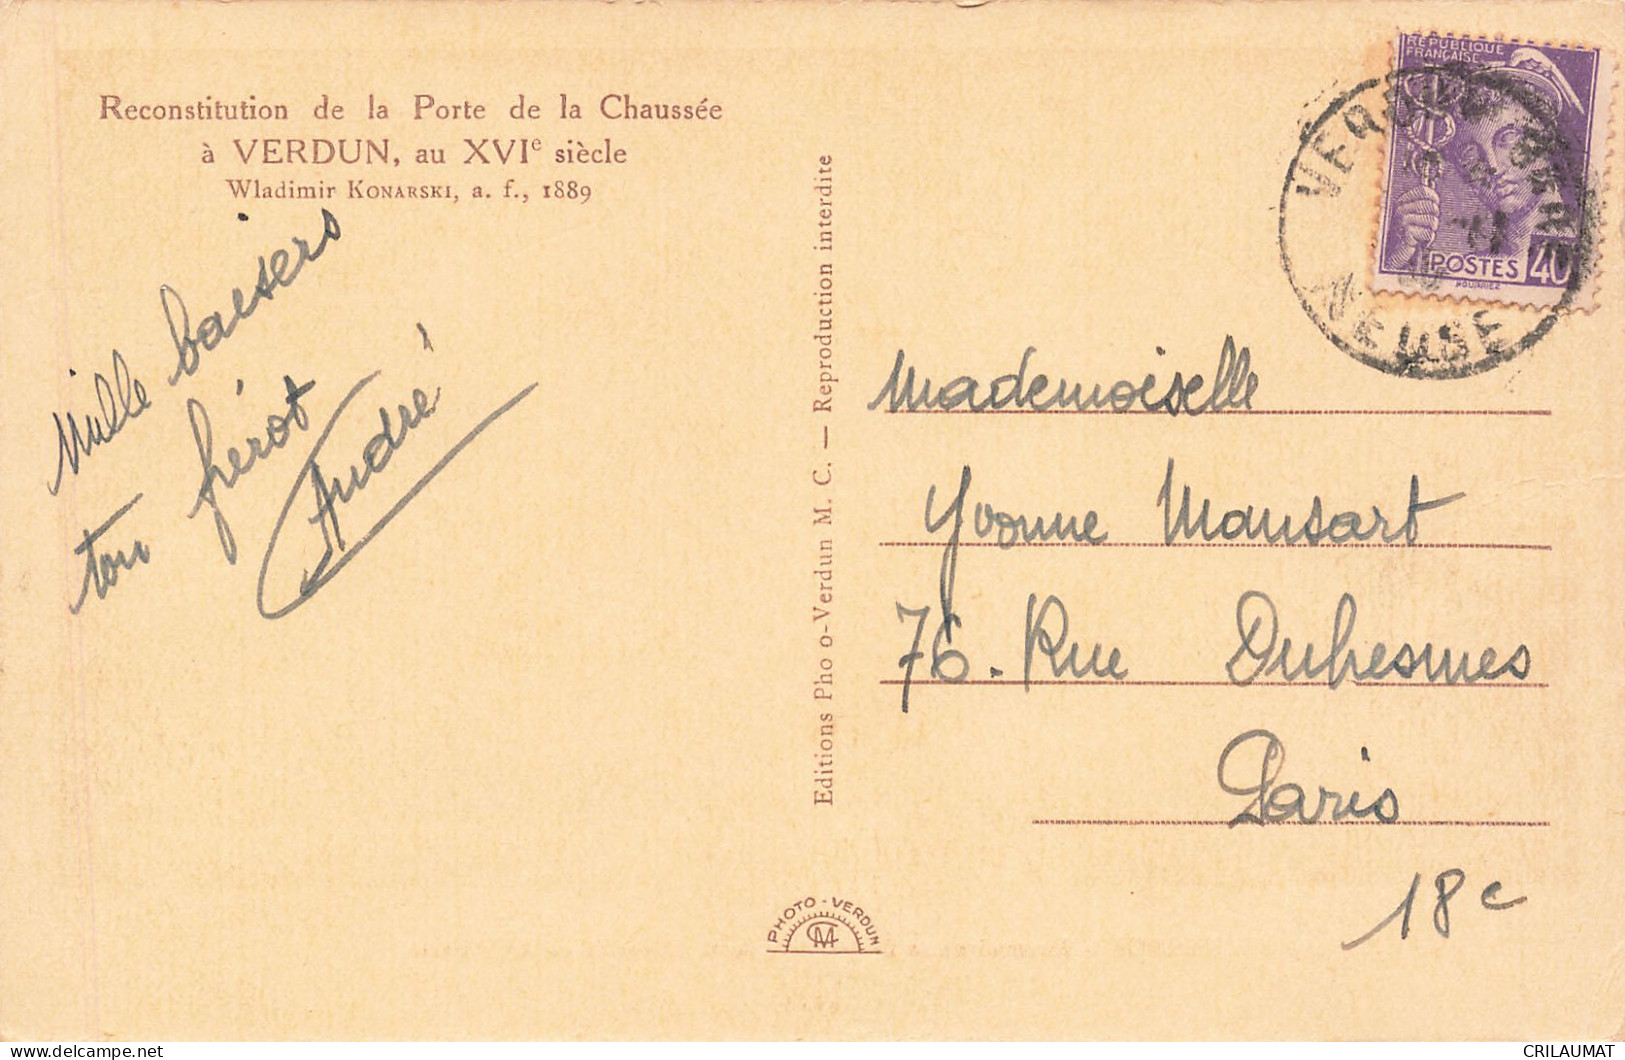 Reconstitution de la Porte de la Chaussée
à VERDUN, au XVIe siècle
Wladimir KONARSKI, a. f., 1889
Mille baisers
ton
André
Editions Pho o-Verdun M. C. — Reproduction interdite
PHOTO - VERDUN
CM
RÉPUBLIQUE
FRANÇAISE
POSTES 40
VERDUN
MEUSE
Mademoiselle
Yvonne Mansart
76. Rue Duhesmes
Paris
18e
CRILAUMAT